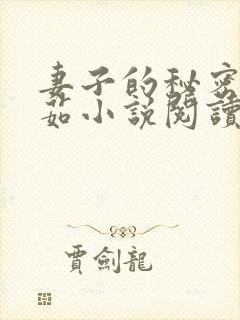 妻子的秘密
茹小說閱讀
賈劍龍